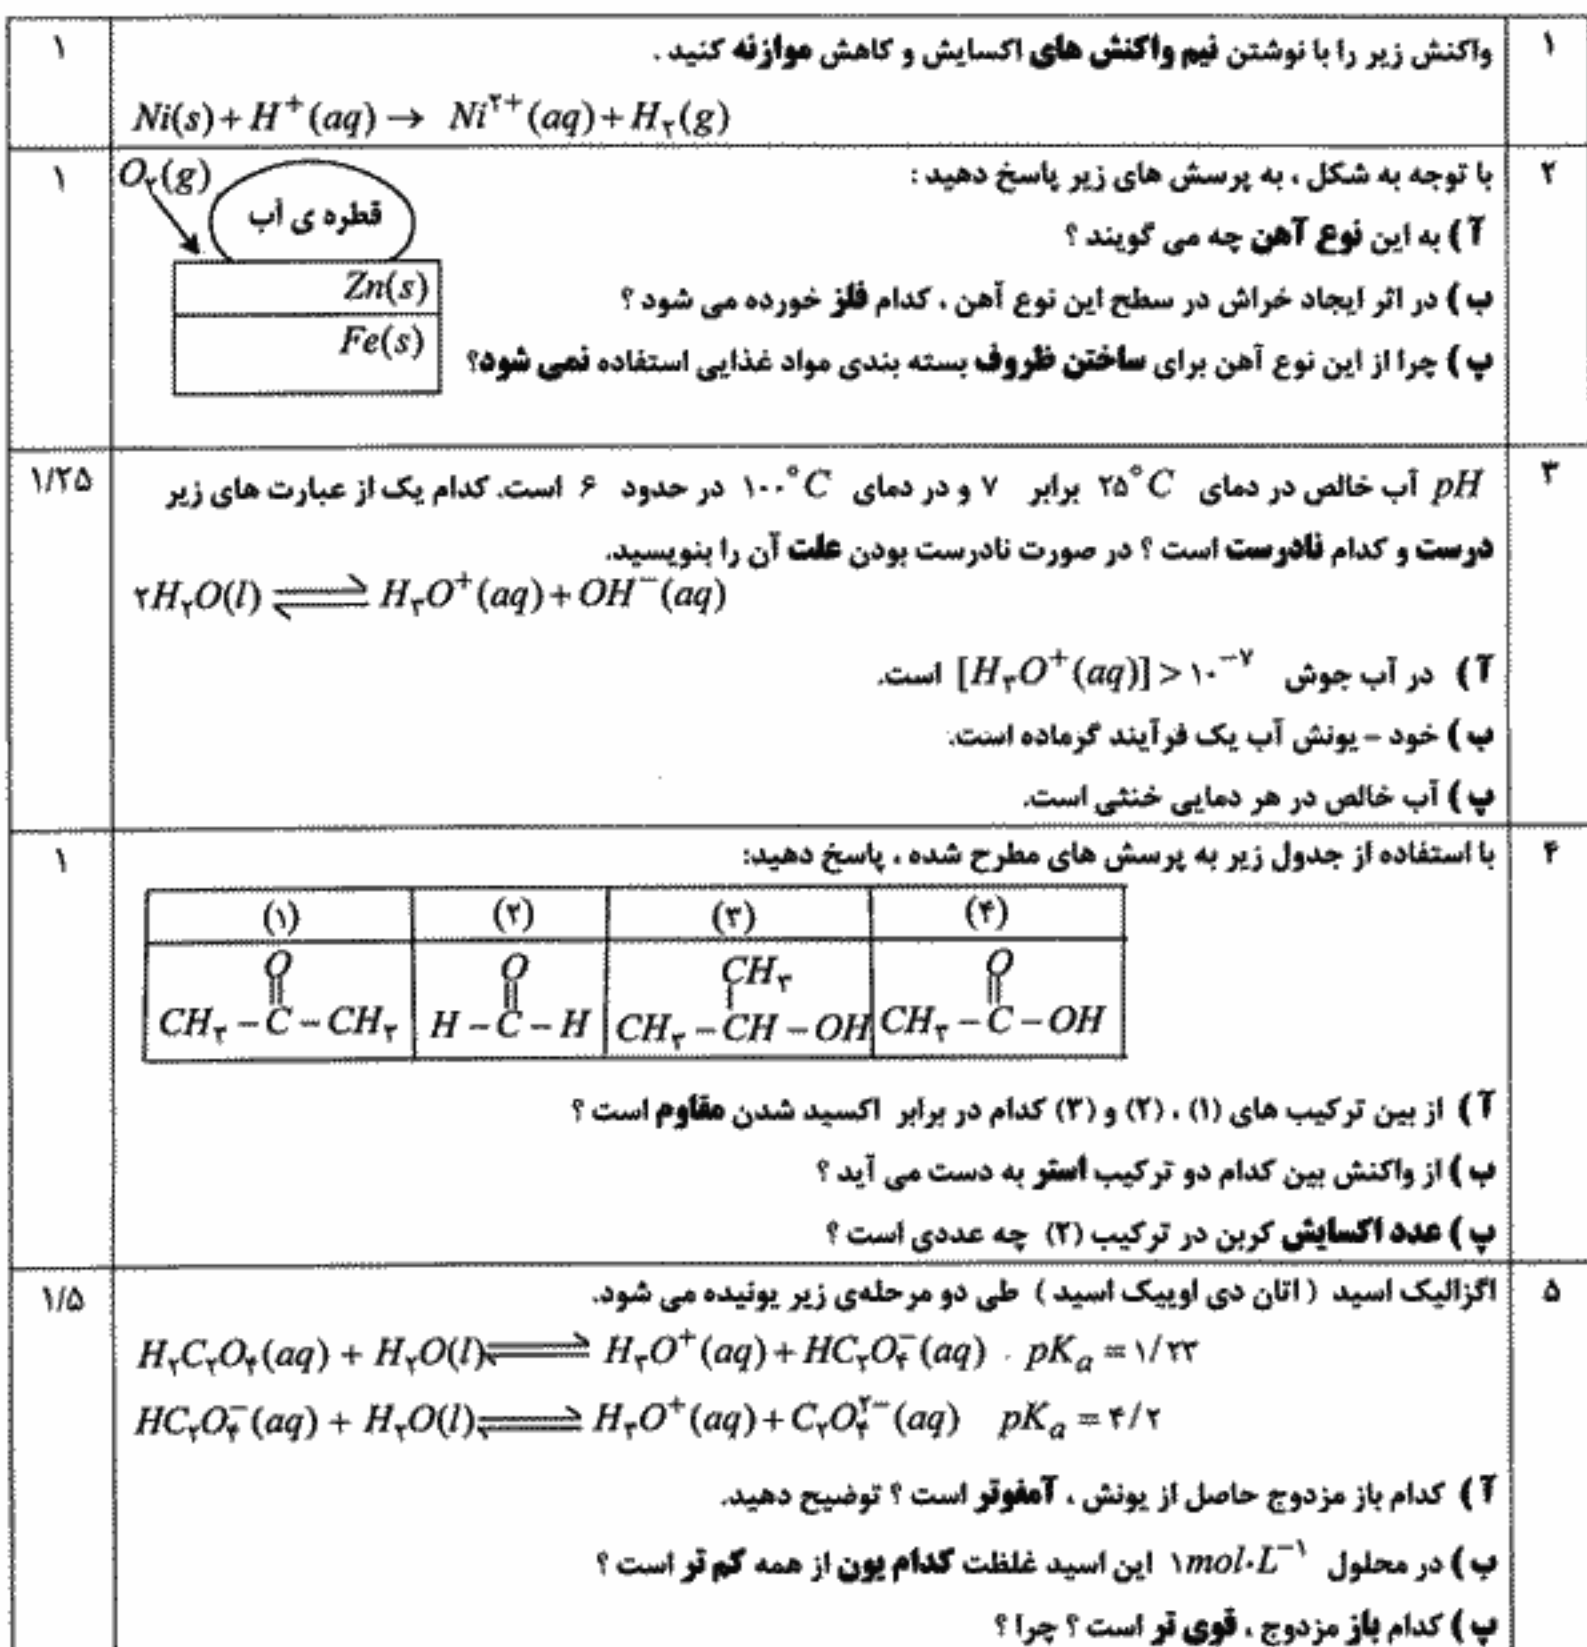 ۱ واکنش زیر را با نوشتن نیم واکنش های اکسایش و کاهش موازنه کنید . ۱
Ni(s) + H⁺(aq) → Ni²⁺(aq) + H₂(g)
۲ با توجه به شکل ، به پرسش های زیر پاسخ دهید : ۱
آ ) به این نوع آهن چه می گویند ؟
ب ) در اثر ایجاد خراش در سطح این نوع آهن ، کدام فلز خورده می شود ؟
پ ) چرا از این نوع آهن برای ساختن ظروف بسته بندی مواد غذایی استفاده نمی شود؟
O₂(g)
قطره ی آب
Zn(s)
Fe(s)
۳ pH آب خالص در دمای ۲۵°C برابر ۷ و در دمای ۱۰۰°C در حدود ۶ است. کدام یک از عبارت های زیر ۱/۲۵
درست و کدام نادرست است ؟ در صورت نادرست بودن علت آن را بنویسید.
۲H₂O(l) ⇌ H₃O⁺(aq) + OH⁻(aq)
آ ) در آب جوش [H₃O⁺(aq)] > ۱۰⁻۷ است.
ب ) خود – یونش آب یک فرآیند گرماده است.
پ ) آب خالص در هر دمایی خنثی است.
۴ با استفاده از جدول زیر به پرسش های مطرح شده ، پاسخ دهید: ۱
(۱) (۲) (۳) (۴)
O O CH₃ O
CH₃ – C – CH₃ H – C – H CH₃ – CH – OH CH₃ – C – OH
آ ) از بین ترکیب های (۱) ، (۲) و (۳) کدام در برابر اکسید شدن مقاوم است ؟
ب ) از واکنش بین کدام دو ترکیب استر به دست می آید ؟
پ ) عدد اکسایش کربن در ترکیب (۲) چه عددی است ؟
۵ اگزالیک اسید ( اتان دی اوییک اسید ) طی دو مرحله‌ی زیر یونیده می شود. ۱/۵
H₂C₂O₄(aq) + H₂O(l) ⇌ H₃O⁺(aq) + HC₂O₄⁻(aq) pKₐ = ۱/۲۳
HC₂O₄⁻(aq) + H₂O(l) ⇌ H₃O⁺(aq) + C₂O₄²⁻(aq) pKₐ = ۴/۲
آ ) کدام باز مزدوج حاصل از یونش ، آمفوتر است ؟ توضیح دهید.
ب ) در محلول ۱mol·L⁻¹ این اسید غلظت کدام یون از همه کم تر است ؟
پ ) کدام باز مزدوج ، قوی تر است ؟ چرا ؟